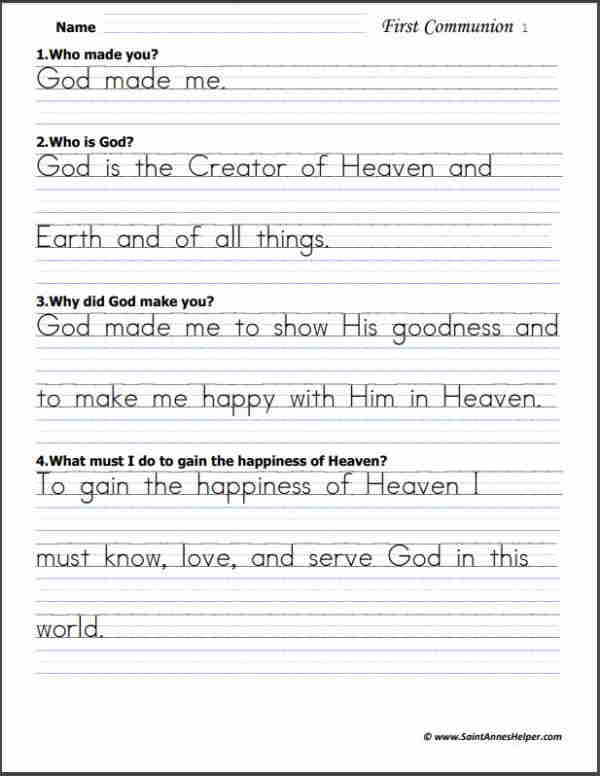 Name First Communion 1
1.Who made you?
God made me.
2.Who is God?
God is the Creator of Heaven and
Earth and of all things.
3.Why did God make you?
God made me to show His goodness and
to make me happy with Him in Heaven.
4.What must I do to gain the happiness of Heaven?
To gain the happiness of Heaven I
must know, love, and serve God in this
world.
© www.SaintAnnesHelper.com